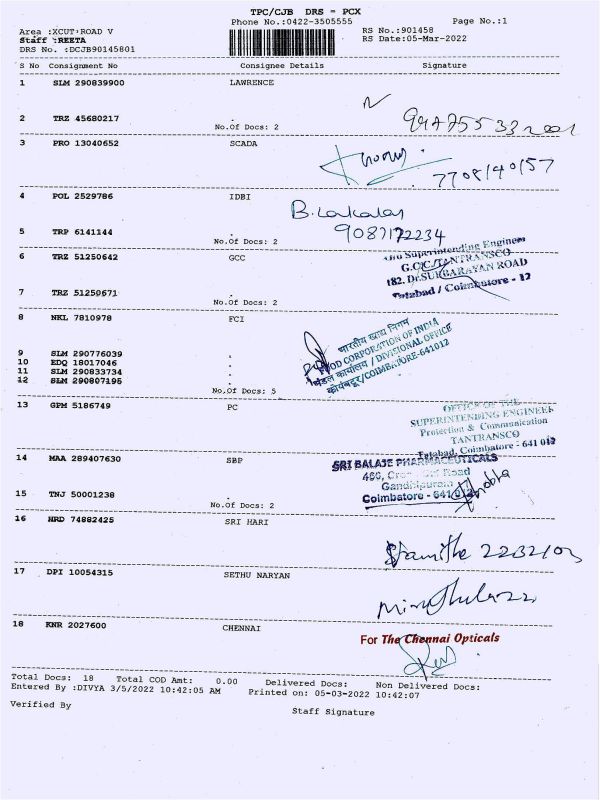 TPC/CJB DRS = PCX
Phone No.:0422-3505555 Page No.:1
Area :XCUT:ROAD V RS No.:901458
Staff :REETA RS Date:05-Mar-2022
DRS No. :DCJB90145801
S No Consignment No Consignee Details Signature
1 SLM 290839900 LAWRENCE
2 TRZ 45680217
No.Of Docs: 2
3 PRO 13040652 SCADA
7708140157
4 POL 2529786 IDBI
9087172234
5 TRP 6141144
No.Of Docs: 2
6 TRZ 51250642 GCC
Superintending Engineer
G.C.C./TANTRANSCO
182, Dr.SUBBARAYAN ROAD
Tatabad / Coimbatore - 12
7 TRZ 51250671
No.Of Docs: 2
8 NKL 7810978 FCI
भारतीय खाद्य निगम
FOOD CORPORATION OF INDIA
मंडल कार्यालय / DIVISIONAL OFFICE
कोयंबटूर/COIMBATORE-641012
9 SLM 290776039
10 EDQ 18017046
11 SLM 290833734
12 SLM 290807195
No.Of Docs: 5
13 GPM 5186749 PC
OFFICE OF THE
SUPERINTENDING ENGINEER
Protection & Communication
TANTRANSCO
Tatabad, Coimbatore - 641 012
14 MAA 289407630 SBP
SRI BALAJE PHARMACEUTICALS
Road
Gandhipuram
Coimbatore - 641 012
15 TNJ 50001238
No.Of Docs: 2
16 NRD 74882425 SRI HARI
17 DPI 10054315 SETHU NARYAN
18 KNR 2027600 CHENNAI
For The Chennai Opticals
Total Docs: 18 Total COD Amt: 0.00 Delivered Docs: Non Delivered Docs:
Entered By :DIVYA 3/5/2022 10:42:05 AM Printed on: 05-03-2022 10:42:07
Verified By
Staff Signature